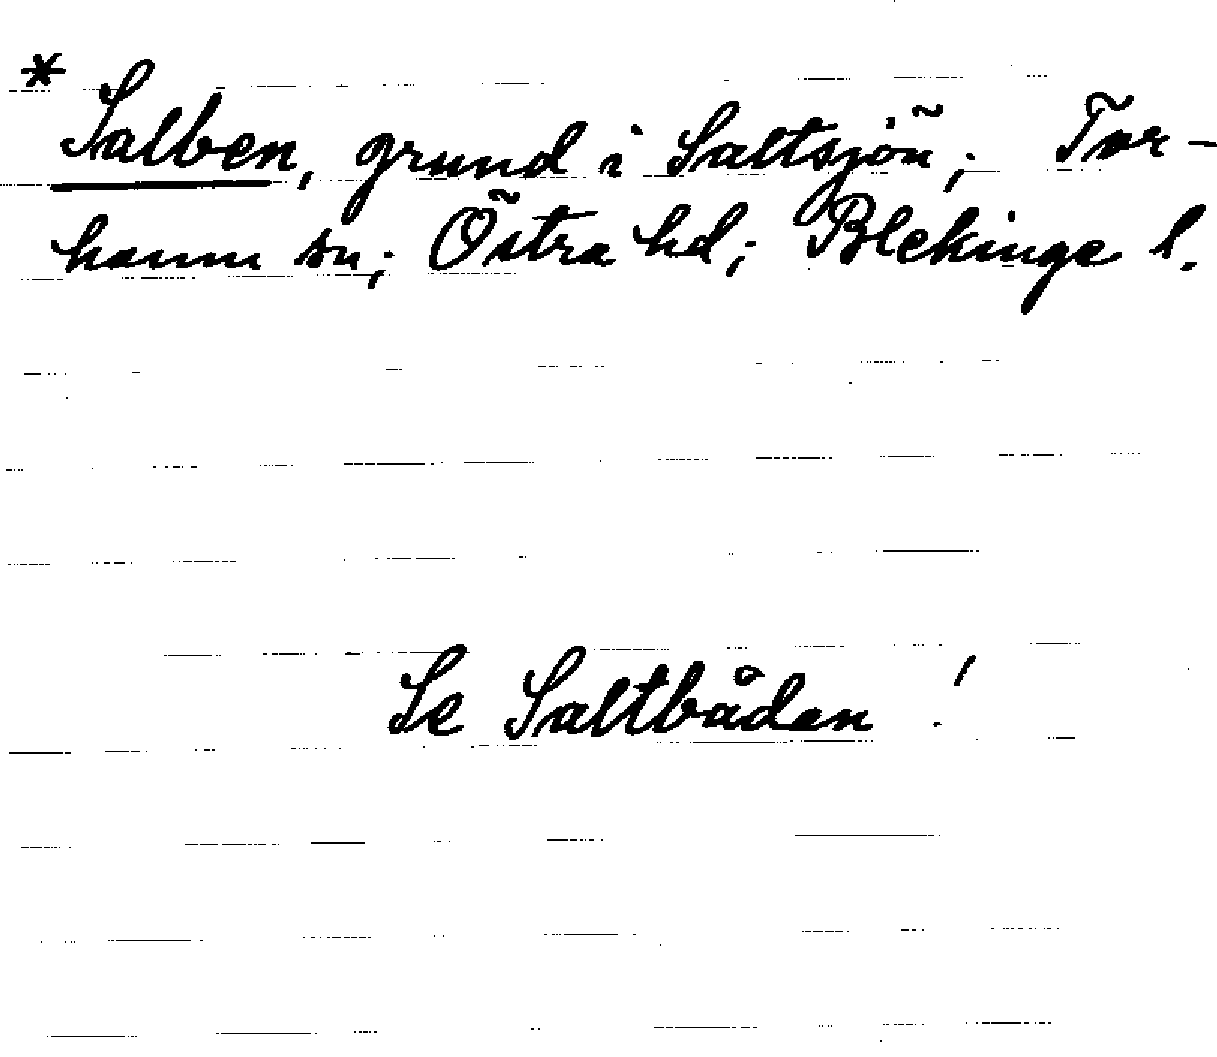 * Salben, grund i Saltsjön; Tor-
hamn sn; Östra hd; Blekinge l.
Se Saltbåden!